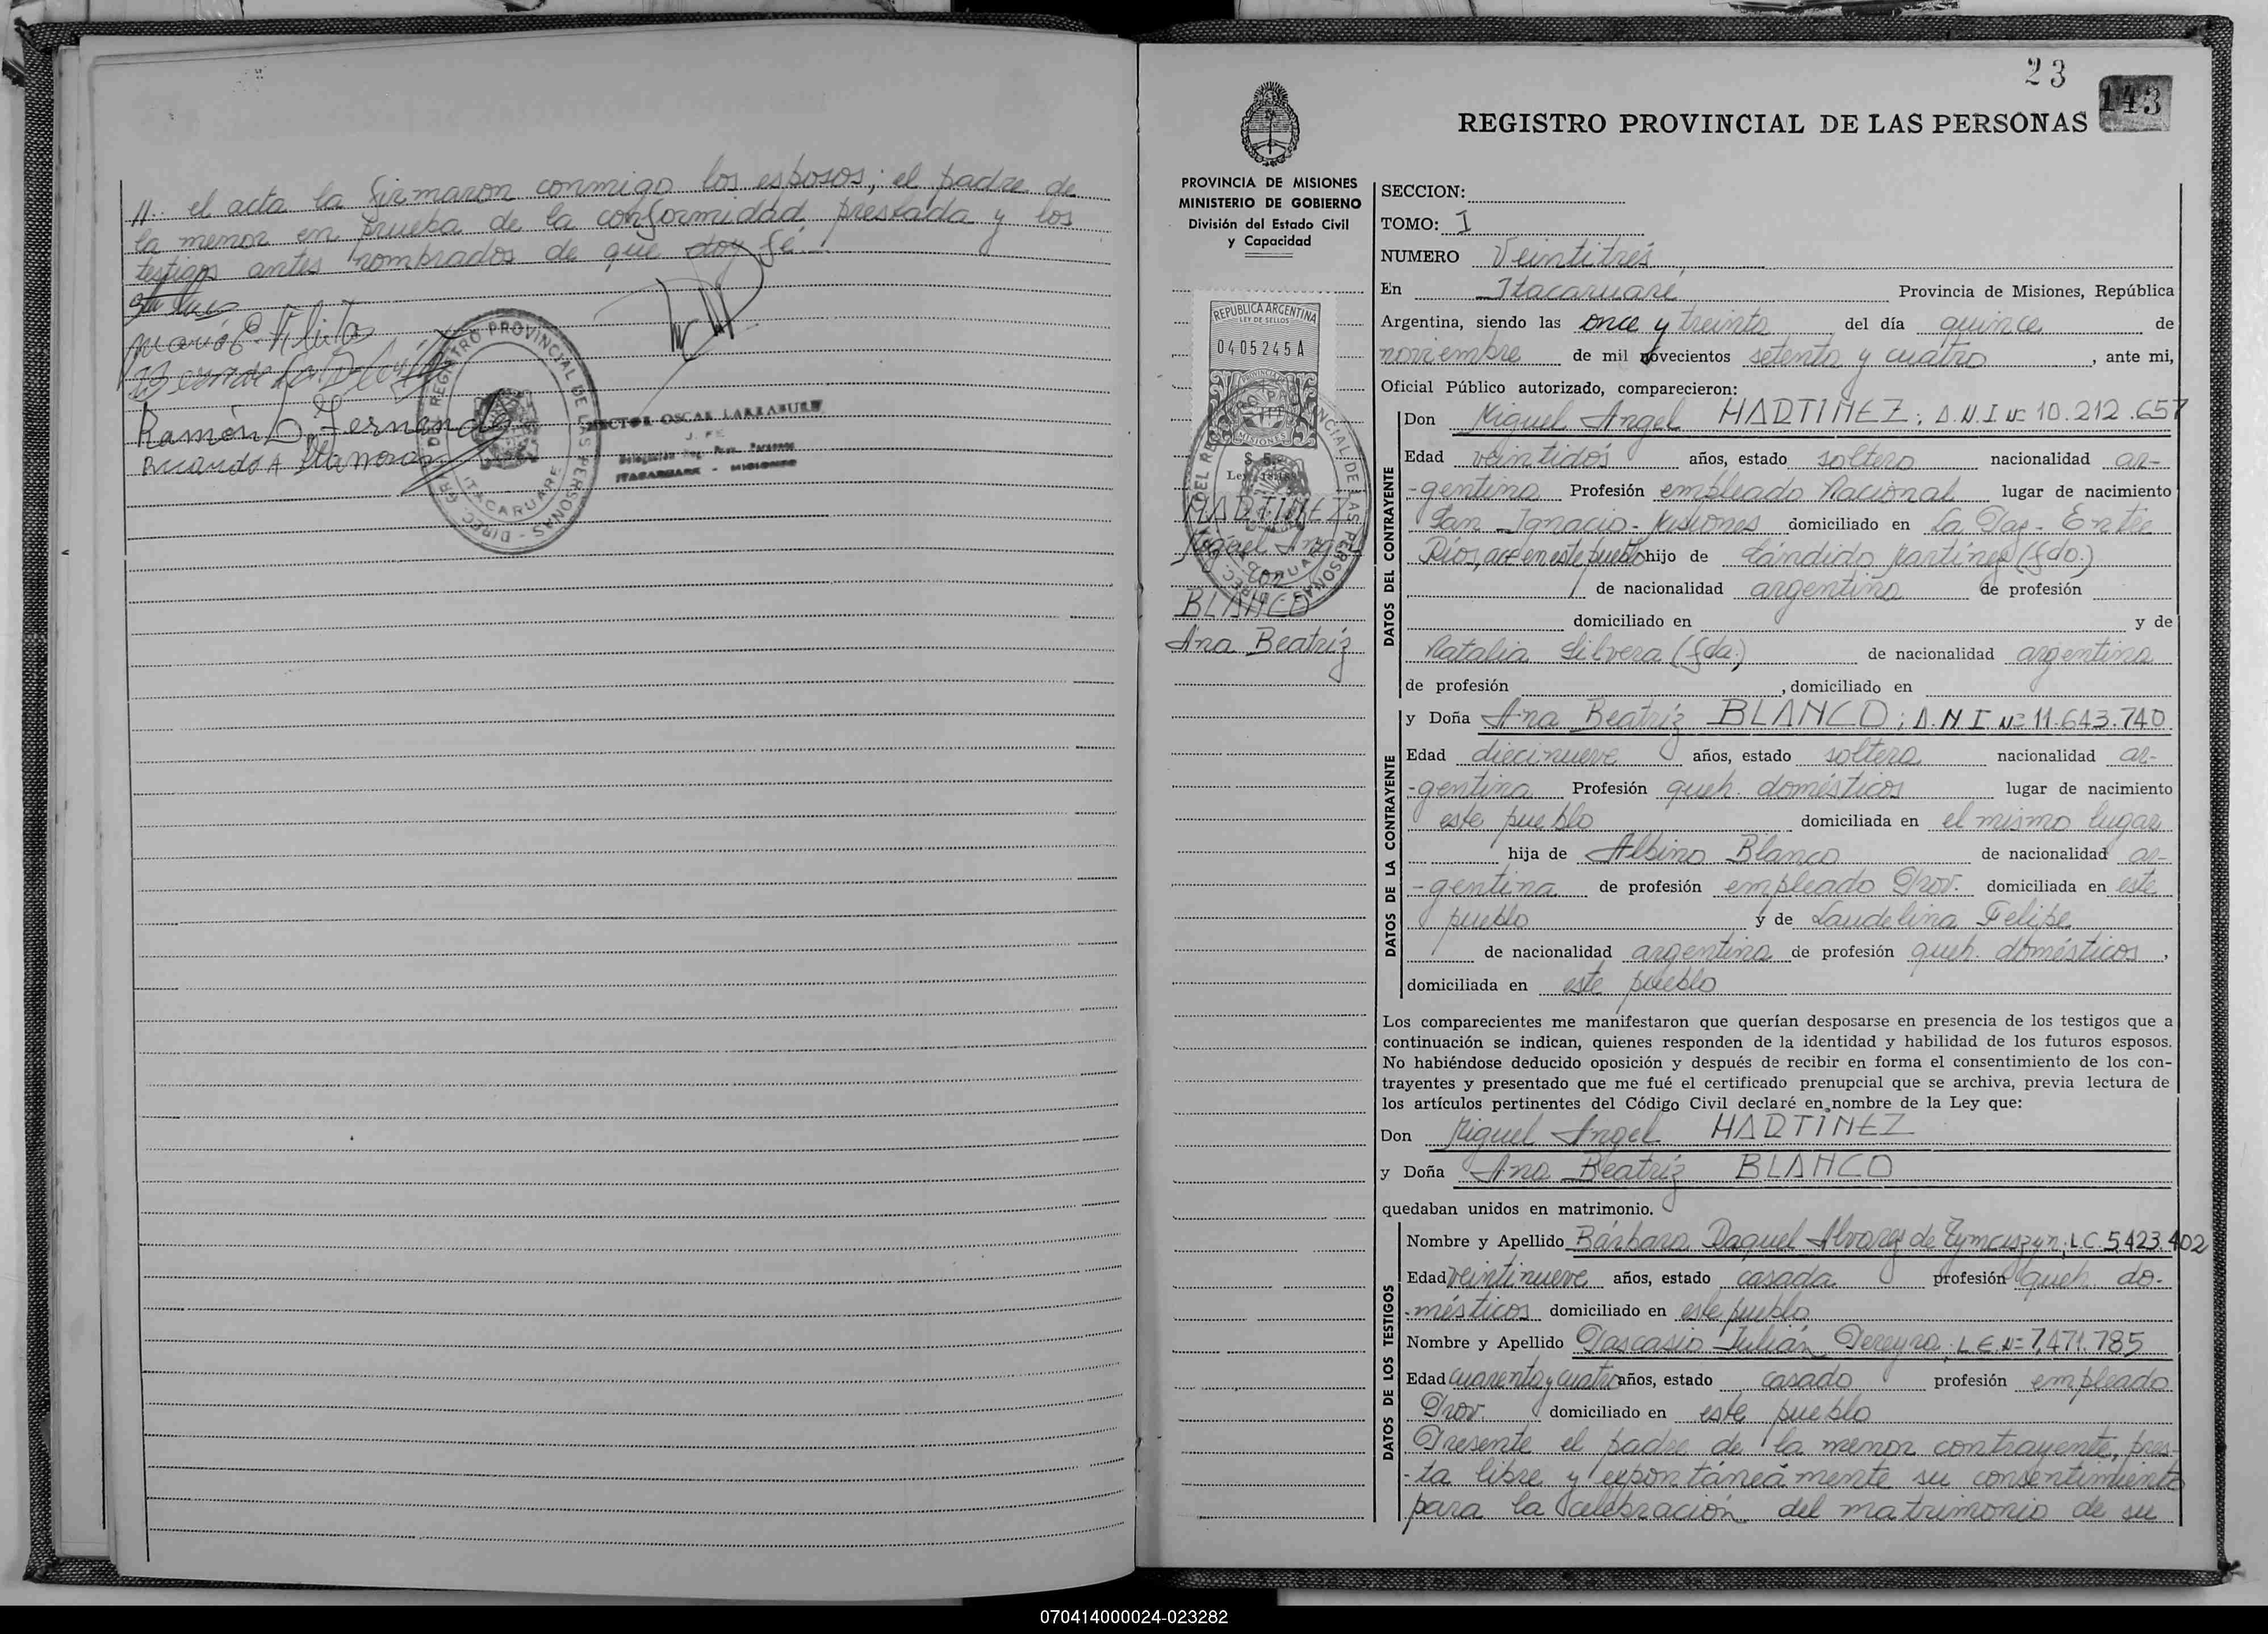 //. el acta la firmaron conmigo los esposos; el padre de
la menor en prueba de la conformidad prestada y los
testigos antes nombrados de que doy fé.
Ramón D. Fernández
Ricardo A
REGISTRO PROVINCIAL DE LAS PERSONAS
ITACARUARE
HECTOR OSCAR LARRABURE
ITACARUARE - MISIONES
23
143
REGISTRO PROVINCIAL DE LAS PERSONAS
PROVINCIA DE MISIONES
MINISTERIO DE GOBIERNO
División del Estado Civil
y Capacidad
REPUBLICA ARGENTINA
LEY DE SELLOS
0405245A
MISIONES
$ 5.-
MARTINEZ
Miguel Angel
con
BLANCO
Ana Beatriz
SECCION:
TOMO: I
NUMERO Veintitrés
En Itacaruaré Provincia de Misiones, República
Argentina, siendo las once y treinta del día quince de
noviembre de mil novecientos setenta y cuatro, ante mi,
Oficial Público autorizado, comparecieron:
DATOS DEL CONTRAYENTE
Don Miguel Angel MARTINEZ; D.N.I Nº 10.212.657
Edad veintidós años, estado soltero nacionalidad ar-
-gentina Profesión empleado Nacional lugar de nacimiento
San Ignacio - Misiones domiciliado en La Paz - Entre
Ríos, acc en este pueblo hijo de Cándido Martínez (fdo.)
de nacionalidad argentina de profesión
domiciliado en y de
Natalia Silvera (fda.) de nacionalidad argentina
de profesión , domiciliado en
DATOS DE LA CONTRAYENTE
y Doña Ana Beatriz BLANCO; D.N.I Nº 11.643.740
Edad diecinueve años, estado soltera nacionalidad ar-
-gentina Profesión queh. domésticos lugar de nacimiento
este pueblo domiciliada en el mismo lugar
hija de Albino Blanco de nacionalidad ar-
-gentina de profesión empleado Prov. domiciliada en este
pueblo y de Laudelina Felipe
de nacionalidad argentina de profesión queh. domésticos,
domiciliada en este pueblo
Los comparecientes me manifestaron que querían desposarse en presencia de los testigos que a
continuación se indican, quienes responden de la identidad y habilidad de los futuros esposos.
No habiéndose deducido oposición y después de recibir en forma el consentimiento de los con-
trayentes y presentado que me fué el certificado prenupcial que se archiva, previa lectura de
los artículos pertinentes del Código Civil declaré en nombre de la Ley que:
Don Miguel Angel MARTINEZ
y Doña Ana Beatriz BLANCO
quedaban unidos en matrimonio.
DATOS DE LOS TESTIGOS
Nombre y Apellido Bárbara Raquel Alvarez de Tymciszyn; L.C. 5.423.402
Edad veintinueve años, estado casada profesión queh. do-
-mésticos domiciliado en este pueblo
Nombre y Apellido Pascasio Julián Pereyra; L.E. Nº 7.471.785
Edad cuarenta y cuatro años, estado casado profesión empleado
Prov. domiciliado en este pueblo
Presente el padre de la menor contrayente, pres-
-ta libre y expontáneamente su consentimiento
para la celebración del matrimonio de su
070414000024-023282